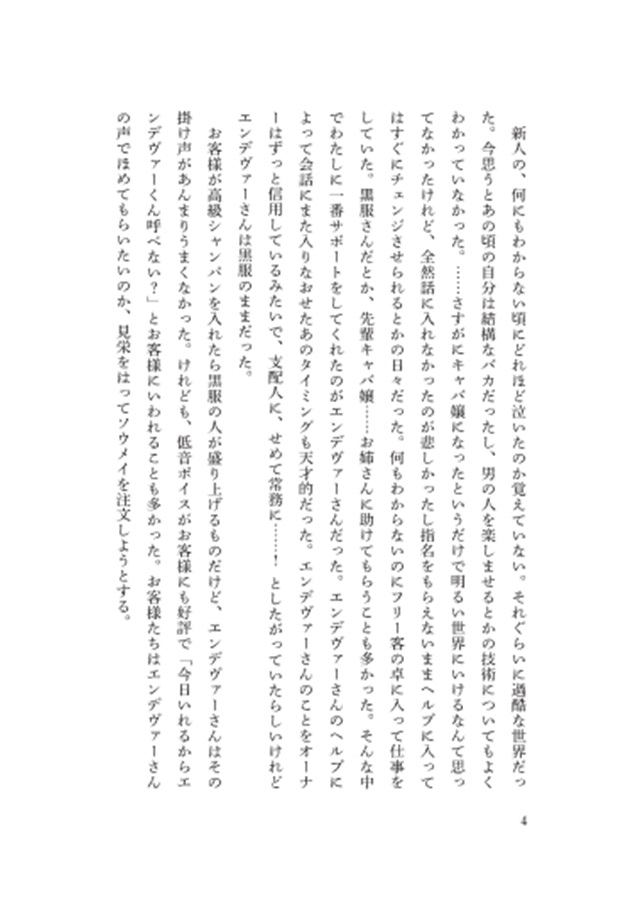 新人の、何にもわからない頃にどれほど泣いたのか覚えていない。それぐらいに過酷な世界だっ
た。今思うとあの頃の自分は結構なバカだったし、男の人を楽しませるとかの技術についてもよく
わかっていなかった。……さすがにキャバ嬢になったというだけで明るい世界にいけるなんて思っ
てなかったけれど、全然話に入れなかったのが悲しかったし指名をもらえないままヘルプに入って
はすぐにチェンジさせられるとかの日々だった。何もわからないのにフリー客の卓に入って仕事を
していた。黒服さんだとか、先輩キャバ嬢……お姉さんに助けてもらうことも多かった。そんな中
でわたしに一番サポートをしてくれたのがエンデヴァーさんだった。エンデヴァーさんのヘルプに
よって会話にまた入りなおせたあのタイミングも天才的だった。エンデヴァーさんのことをオーナ
ーはずっと信用しているみたいで、支配人に、せめて常務に……！　としたがっていたらしいけれど
エンデヴァーさんは黒服のままだった。
お客様が高級シャンパンを入れたら黒服の人が盛り上げるものだけど、エンデヴァーさんはその
掛け声があんまりうまくなかった。けれども、低音ボイスがお客様にも好評で「今日いれるからエ
ンデヴァーくん呼べない？」とお客様にいわれることも多かった。お客様たちはエンデヴァーさん
の声でほめてもらいたいのか、見栄をはってソウメイを注文しようとする。
4